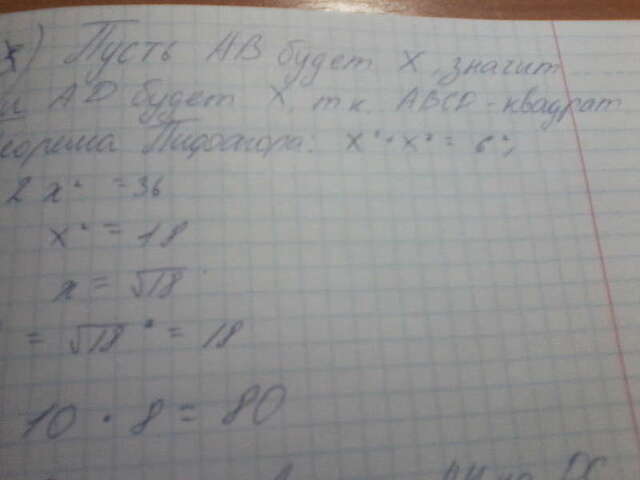 Пусть AB будет X, значит
и AD будет X, т.к. ABCD - квадрат
еорема Пифагора: x² + x² = 6²,
2x² = 36
x² = 18
x = √18
= √18² = 18
10 · 8 = 80